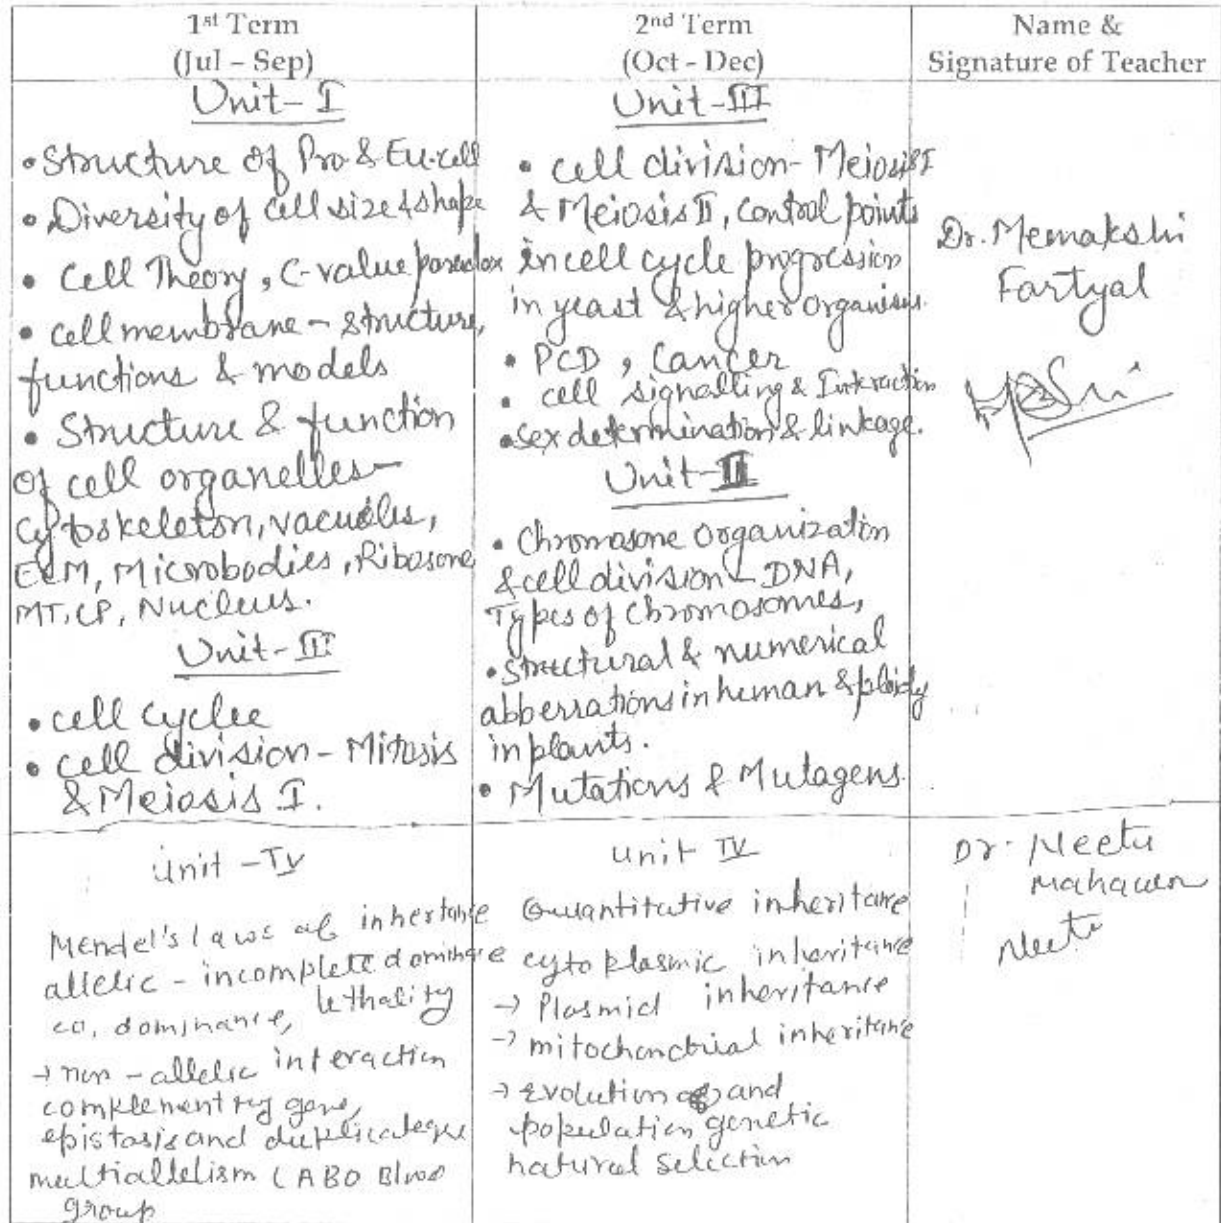 1st Term
(Jul – Sep)
2nd Term
(Oct - Dec)
Name &
Signature of Teacher
Unit- I
• Structure of Pro & Eu-cell
• Diversity of cell size & shape
• Cell Theory, C-value paradox
• cell membrane - structure,
functions & models
• Structure & function
of cell organelles-
Cytoskeleton, vacuoles,
ECM, Microbodies, Ribosone
MT, CP, Nucleus.
Unit- III
• cell cyclee
• cell division - Mitosis
& Meiosis I.
Unit-III
• cell division- Meiosis I
& Meiosis II, control points
in cell cycle progression
in yeast & higher organisms.
• PCD, Cancer
• cell signalling & Interaction
• sex determination & linkage.
Unit-II
• Chromasone Organization
& cell division - DNA,
Types of Chromosomes,
• Structural & numerical
abberrations in human & ploidy
in plants.
• Mutations & Mutagens
Dr. Meenakshi
Fartyal
Unit -IV
Mendel's laws of inhertance
allelic - incomplete dominance
co, dominance, lethality
→ non-allelic interaction
complementry gene,
epistasis and duplicate gene
multiallelism (ABO Blood
group
Unit IV
Quantitative inheritance
cytoplasmic inheritance
→ Plasmid inheritance
→ mitochondrial inheritance
→ Evolution and
population genetic
natural selection
Dr. Neetu
Neetu